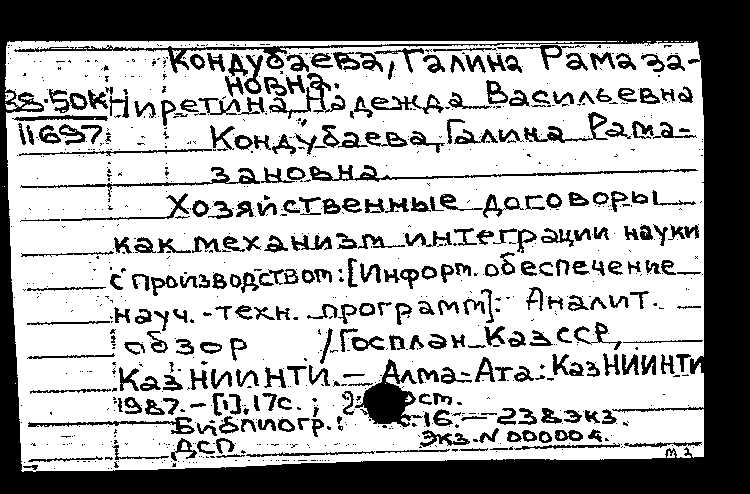 Кондубаева, Галина Рамаза-
новна.
38.50К Ниретина, Надежда Васильевна
11697 Кондубаева, Галина Рама-
зановна.
Хозяйственные договоры
как механизм интеграции науки
с производством: [Информ. обеспечение
науч.-техн. программ]: Аналит.
обзор / Госплан КазССР,
КазНИИНТИ. — Алма-Ата: КазНИИНТИ
1987. — [1], 17с.;
Библиогр.: с. 16. — 238экз.
ДСП. Экз. N 000004.